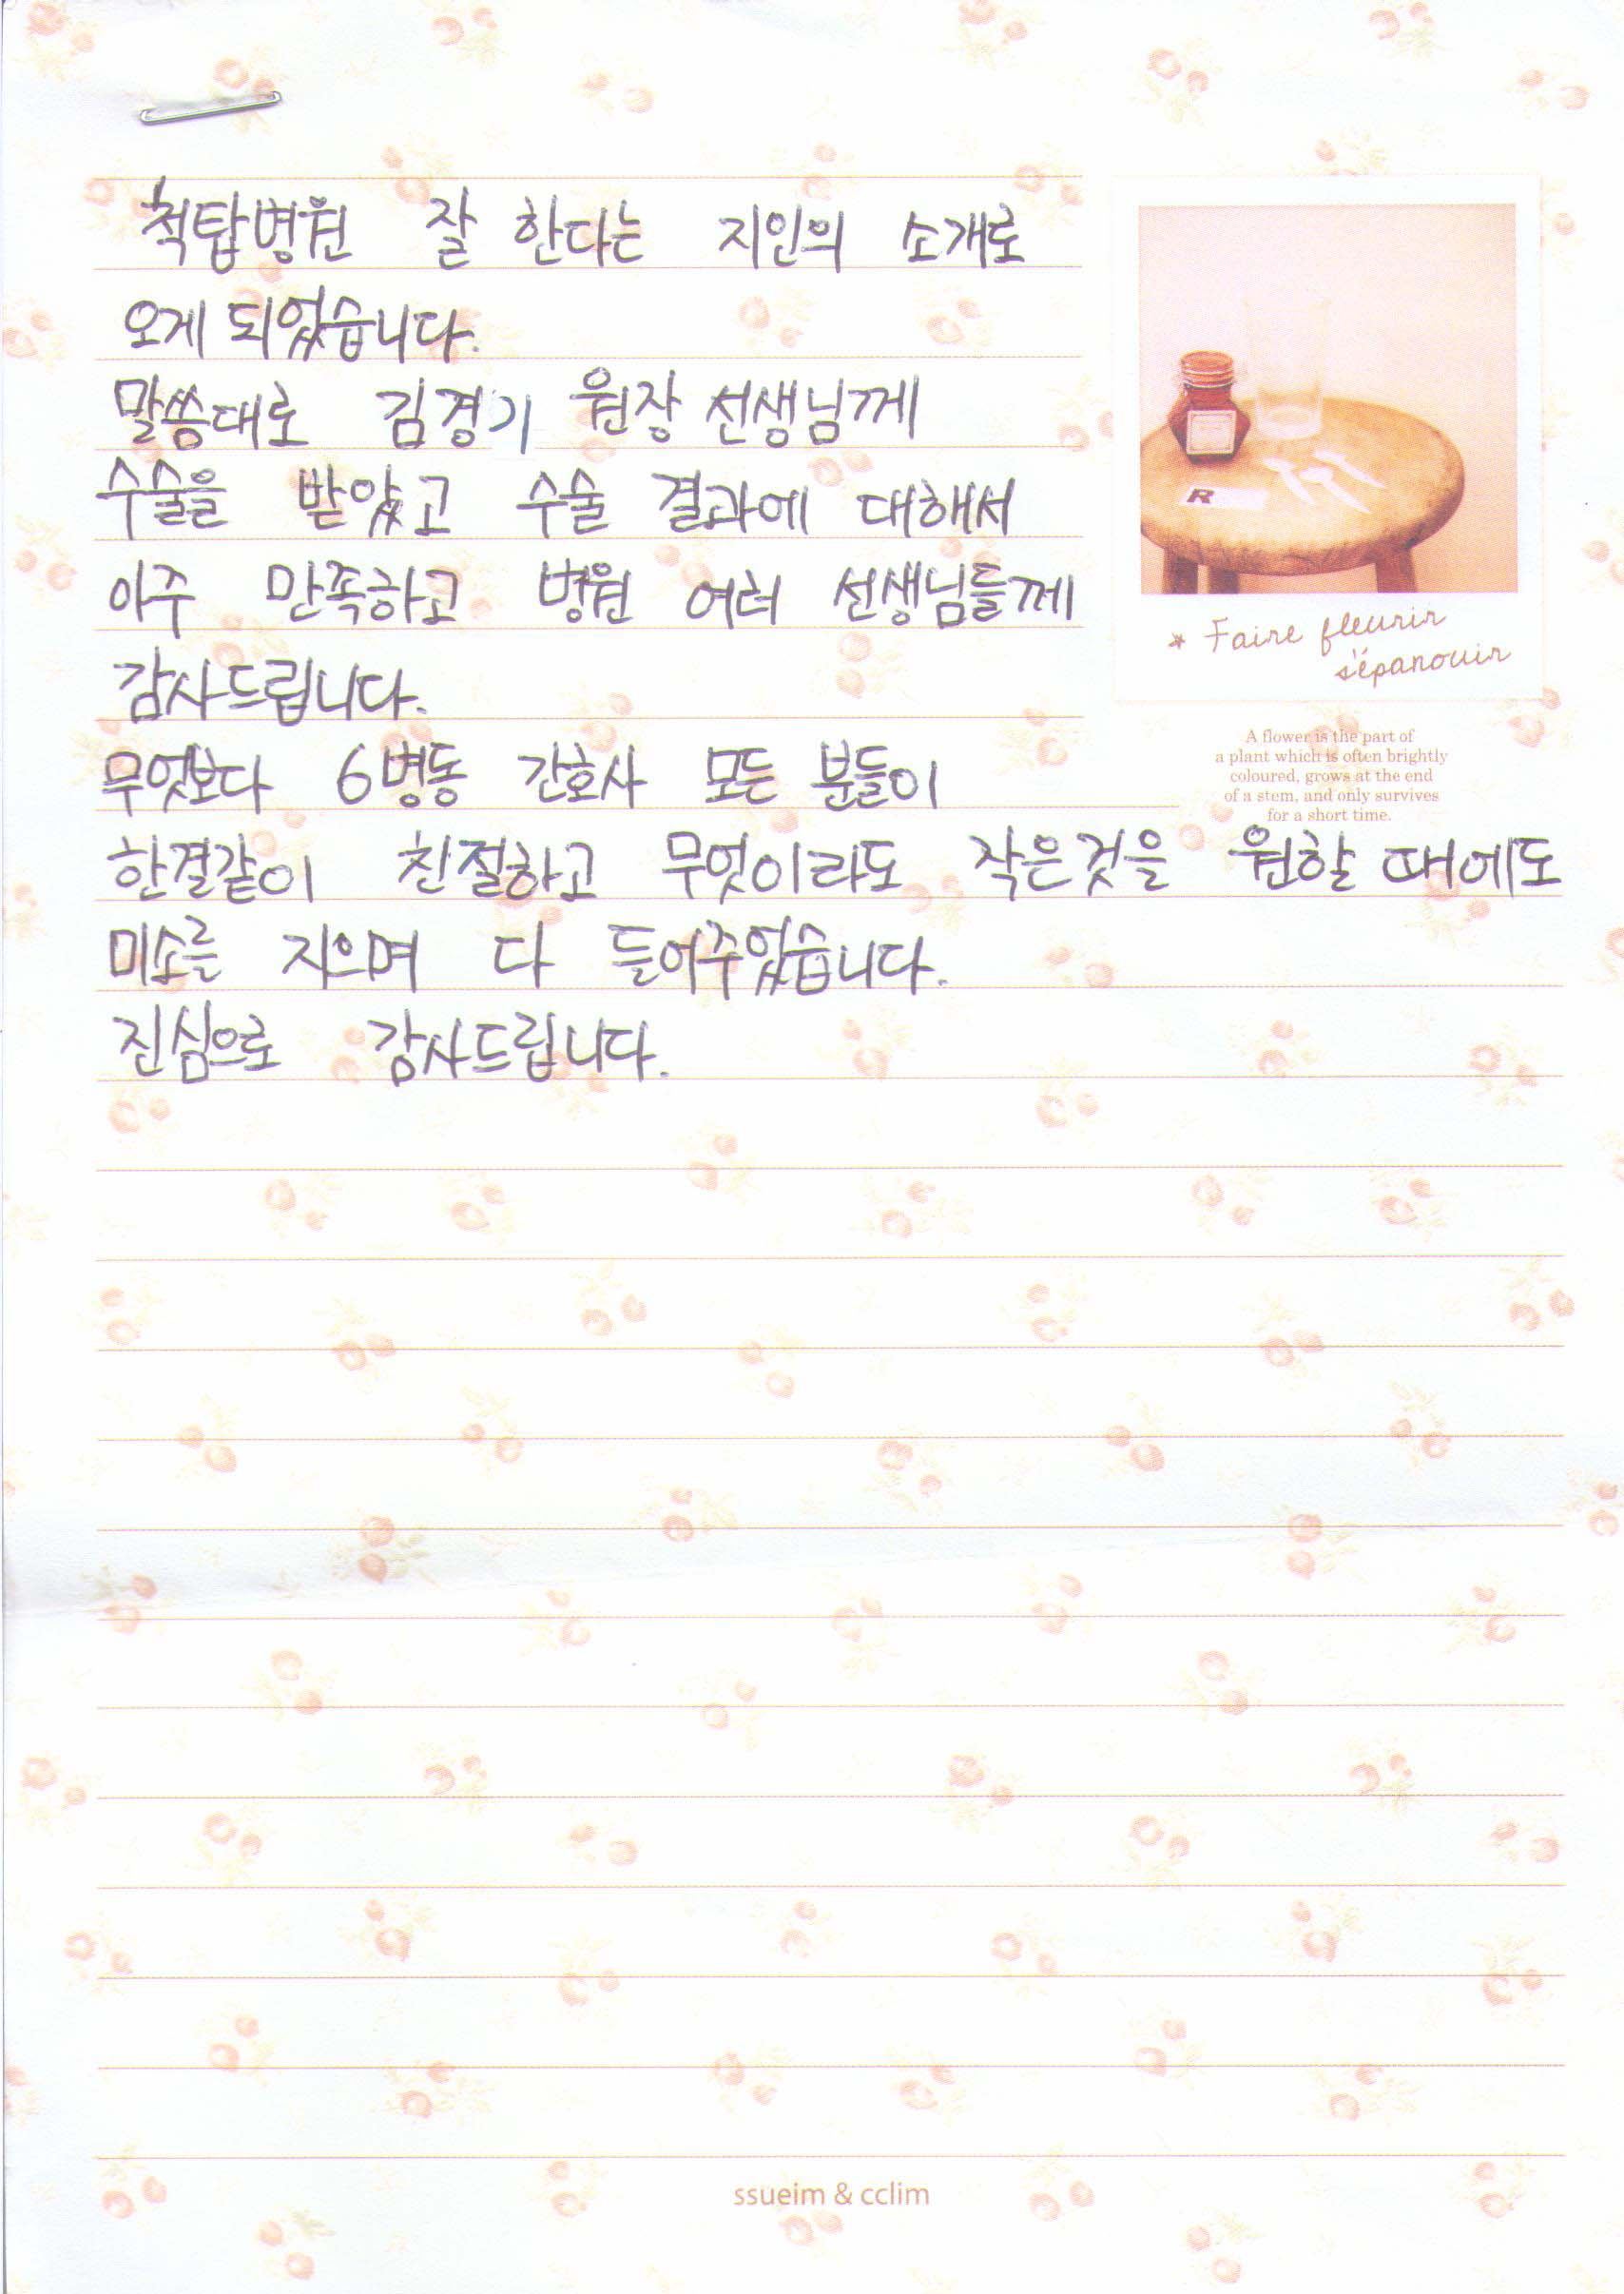 척탑병원 잘 한다는 지인의 소개로
오게 되었습니다.
말씀대로 김경기 원장 선생님께
수술을 받았고 수술 결과에 대해서
아주 만족하고 병원 여러 선생님들께
감사드립니다.
무엇보다 6병동 간호사 모든 분들이
한결같이 친절하고 무엇이라도 작은것을 원할 때에도
미소를 지으며 다 들어주었습니다.
진심으로 감사드립니다.
R
* Faire fleurir
s'épanouir
A flower is the part of
a plant which is often brightly
coloured, grows at the end
of a stem, and only survives
for a short time.
ssueim & cclim